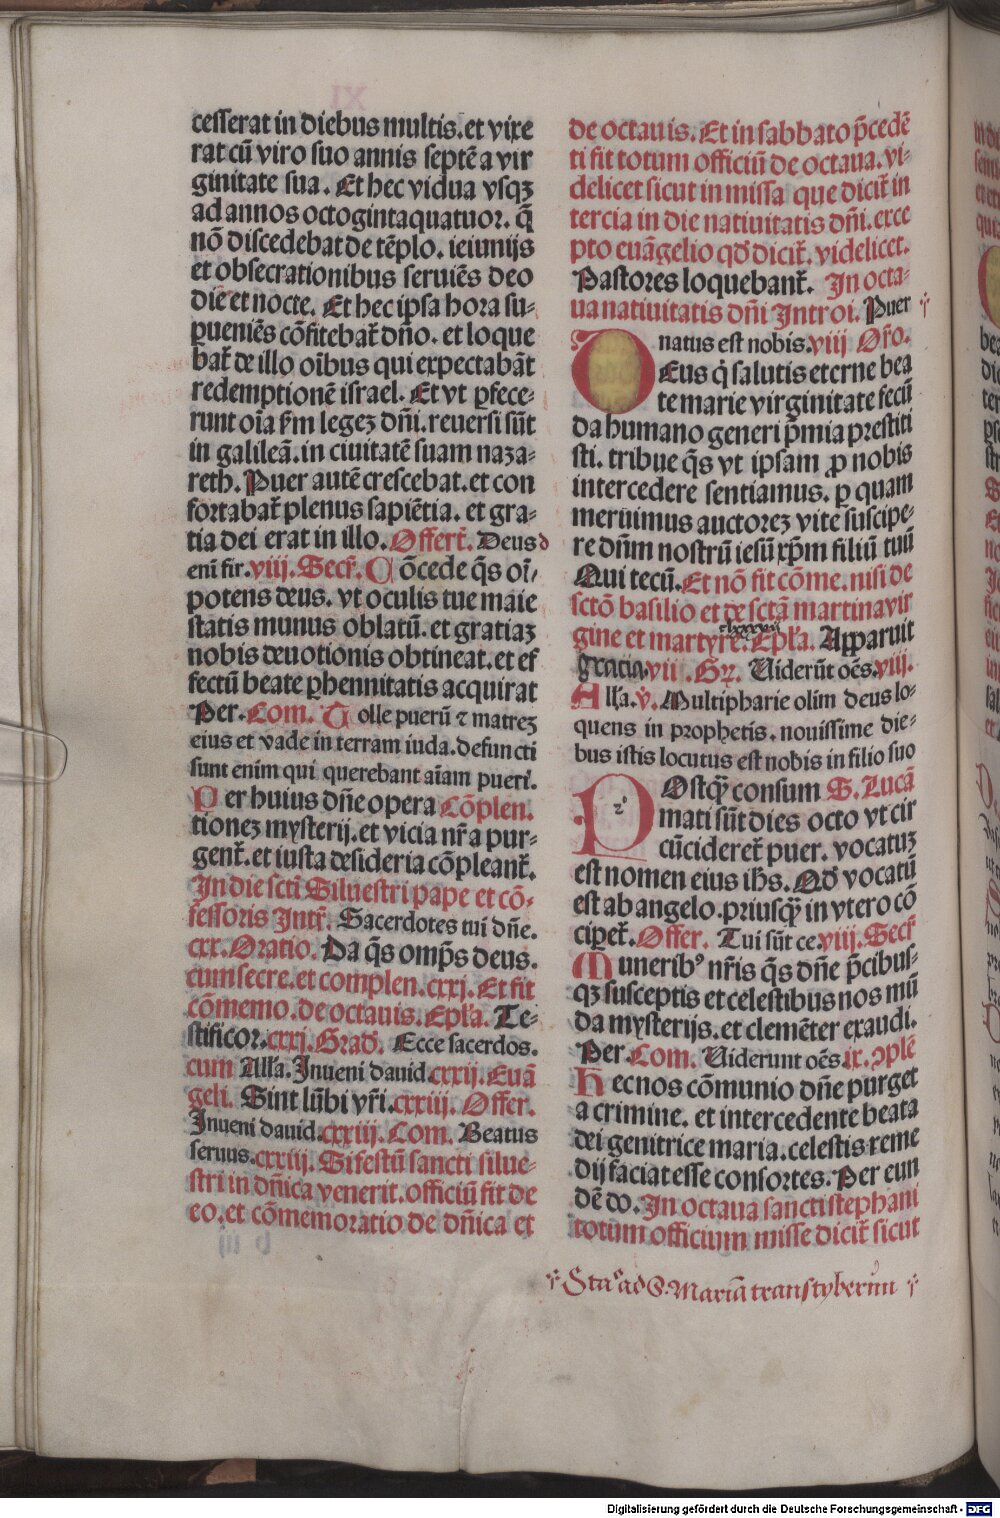 cesserat in diebus multis. et vixe
rat cũ viro suo annis septẽ a vir
ginitate sua. Et hec vidua vsqꝫ
ad annos octogintaquatuor. q̃
nõ discedebat de tẽplo. ieiunijs
et obsecrationibus seruiẽs deo
die et nocte. Et hec ipsa hora su⸗
pueniẽs cõfitebat̃ dño. et loque
bat̃ de illo oĩbus qui expectabãt
redemptionẽ israel. Et vt ꝑfece⸗
runt oĩa ẜm legeꝫ dñi. reuersi sũt
in galileã. in ciuitatẽ suam naza⸗
reth. Puer autẽ crescebat. et con
fortabat̃ plenus sapiẽtia. et gra⸗
tia dei erat in illo. Offert̃. Deus
enĩ fir. viii. Secr̃. Cõcede q̃s oĩ⸗
potens deus. vt oculis tue maie
statis munus oblatũ. et gratiaꝫ
nobis deuotionis obtineat. et ef
fectũ beate ꝑhennitatis acquirat
Per. Com. Tolle puerũ ⁊ matreꝫ
eius et vade in terram iuda. defuncti
sunt enim qui querebant aĩam pueri.
Per huius dñe opera Cõplen.
tioneꝫ mysterij. et vicia nr̃a pur⸗
gent̃. et iusta desideria cõpleant̃.
In die scti Siluestri pape et cõ⸗
fessoris Intr̃. Sacerdotes tui dñe.
cxx. Oratio. Da q̃s omp̃s deus.
cum secre. et complen. cxxj. Et fit
cõmemo. de octauis. Epl̃a. Te⸗
stificor. cxxj. Grad̃. Ecce sacerdos.
cum All̃a. Inueni dauid. cxxij. Euã
geli. Sint lũbi vr̃i. cxxiij. Offer.
Inueni dauid. cxxiij. Com. Beatus
seruus. cxxiij. Si festũ sancti silue⸗
stri in dñica venerit. officiũ fit de
eo. et cõmemoratio de dñica et
de octauis. Et in sabbato p̃cedẽ
ti fit totum officiũ de octaua. vi⸗
delicet sicut in missa que dicit̃ in
tercia in die natiuitatis dñi. exce
pto euãgelio qd̃ dicit̃. videlicet.
Pastores loquebant̃. In octa⸗
ua natiuitatis dñi Introi. Puer
natus est nobis. viii Oro.
DEus q̃ salutis eterne bea
te marie virginitate fecũ
da humano generi p̃mia prestiti
sti. tribue q̃s vt ipsam ꝓ nobis
intercedere sentiamus. ꝑ quam
meruimus auctoreꝫ vite suscipe⸗
re dñm nostrũ iesũ xp̃m filiũ tuũ
Qui tecũ. Et nõ fit cõme. nisi de
sctõ basilio et de sctã martina vir
gine et martyre. Epl̃a. Apparuit
gracia. vii. Gr̃. Uiderũt oẽs. viii.
All̃a. v̄. Multipharie olim deus lo⸗
quens in prophetis. nouissime die⸗
bus istis locutus est nobis in filio suo
POstq̃ consum S. Lucã
mati sũt dies octo vt cir
cũcideret̃ puer. vocatuꝫ
est nomen eius ihs. Qd̃ vocatũ
est ab angelo. priusq̃ in vtero cõ
ciperet̃. Offer. Tui sũt ce. viij. Secr̃
Munerib⁹ nr̃is q̃s dñe p̃cibus⸗
qꝫ susceptis et celestibus nos mũ
da mysterijs. et clemẽter exaudi.
Per. Com. Uiderunt oẽs. ix. ↄplẽ
Hec nos cõmunio dñe purget
a crimine. et intercedente beata
dei genitrice maria. celestis reme
dij faciat esse consortes. Per eun
dẽ do. In octaua sancti stephani
totum officium misse dicit̃ sicut
Staº ad S. Mariã transtyberim
Digitalisierung gefördert durch die Deutsche Forschungsgemeinschaft - DFG